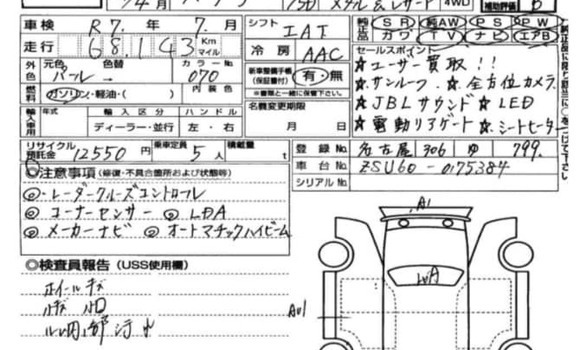 車検 R7.年 7.月
シフト IAT
純正品 SR 純AW PS PW
カワ TV ナビ エアB
走行 68,143 Km マイル
冷房 AAC
セールスポイント
★ユーザー買取!!
★サンルーフ ★全方位カメラ
★JBLサウンド ★LED
★電動リアゲート ★シートヒーター
外色 元色 色替 カラーNo
パール→ 070
新車整備手帳(保証書) 有・無
※書類と一緒に保管下さい。
燃料 ガソリン・軽油・( ) 内装色
名義変更期限
月 日
輸入車用 年式 輸入区分 ハンドル
ディーラー・並行 左・右
リサイクル預託金 12550円 乗車定員 5人 積載量 t
登録No. 名古屋 306 ゆ 799
車台No. ZSU60-0175384
シリアルNo.
◎注意事項(修復・不具合箇所および状態等)
◎レーダークルーズコントロール
◎コーナーセンサー ◎LDA
◎メーカーナビ ◎オートマチックハイビーム
◎検査員報告(USS使用欄)
ホイールキズ
A1
A01